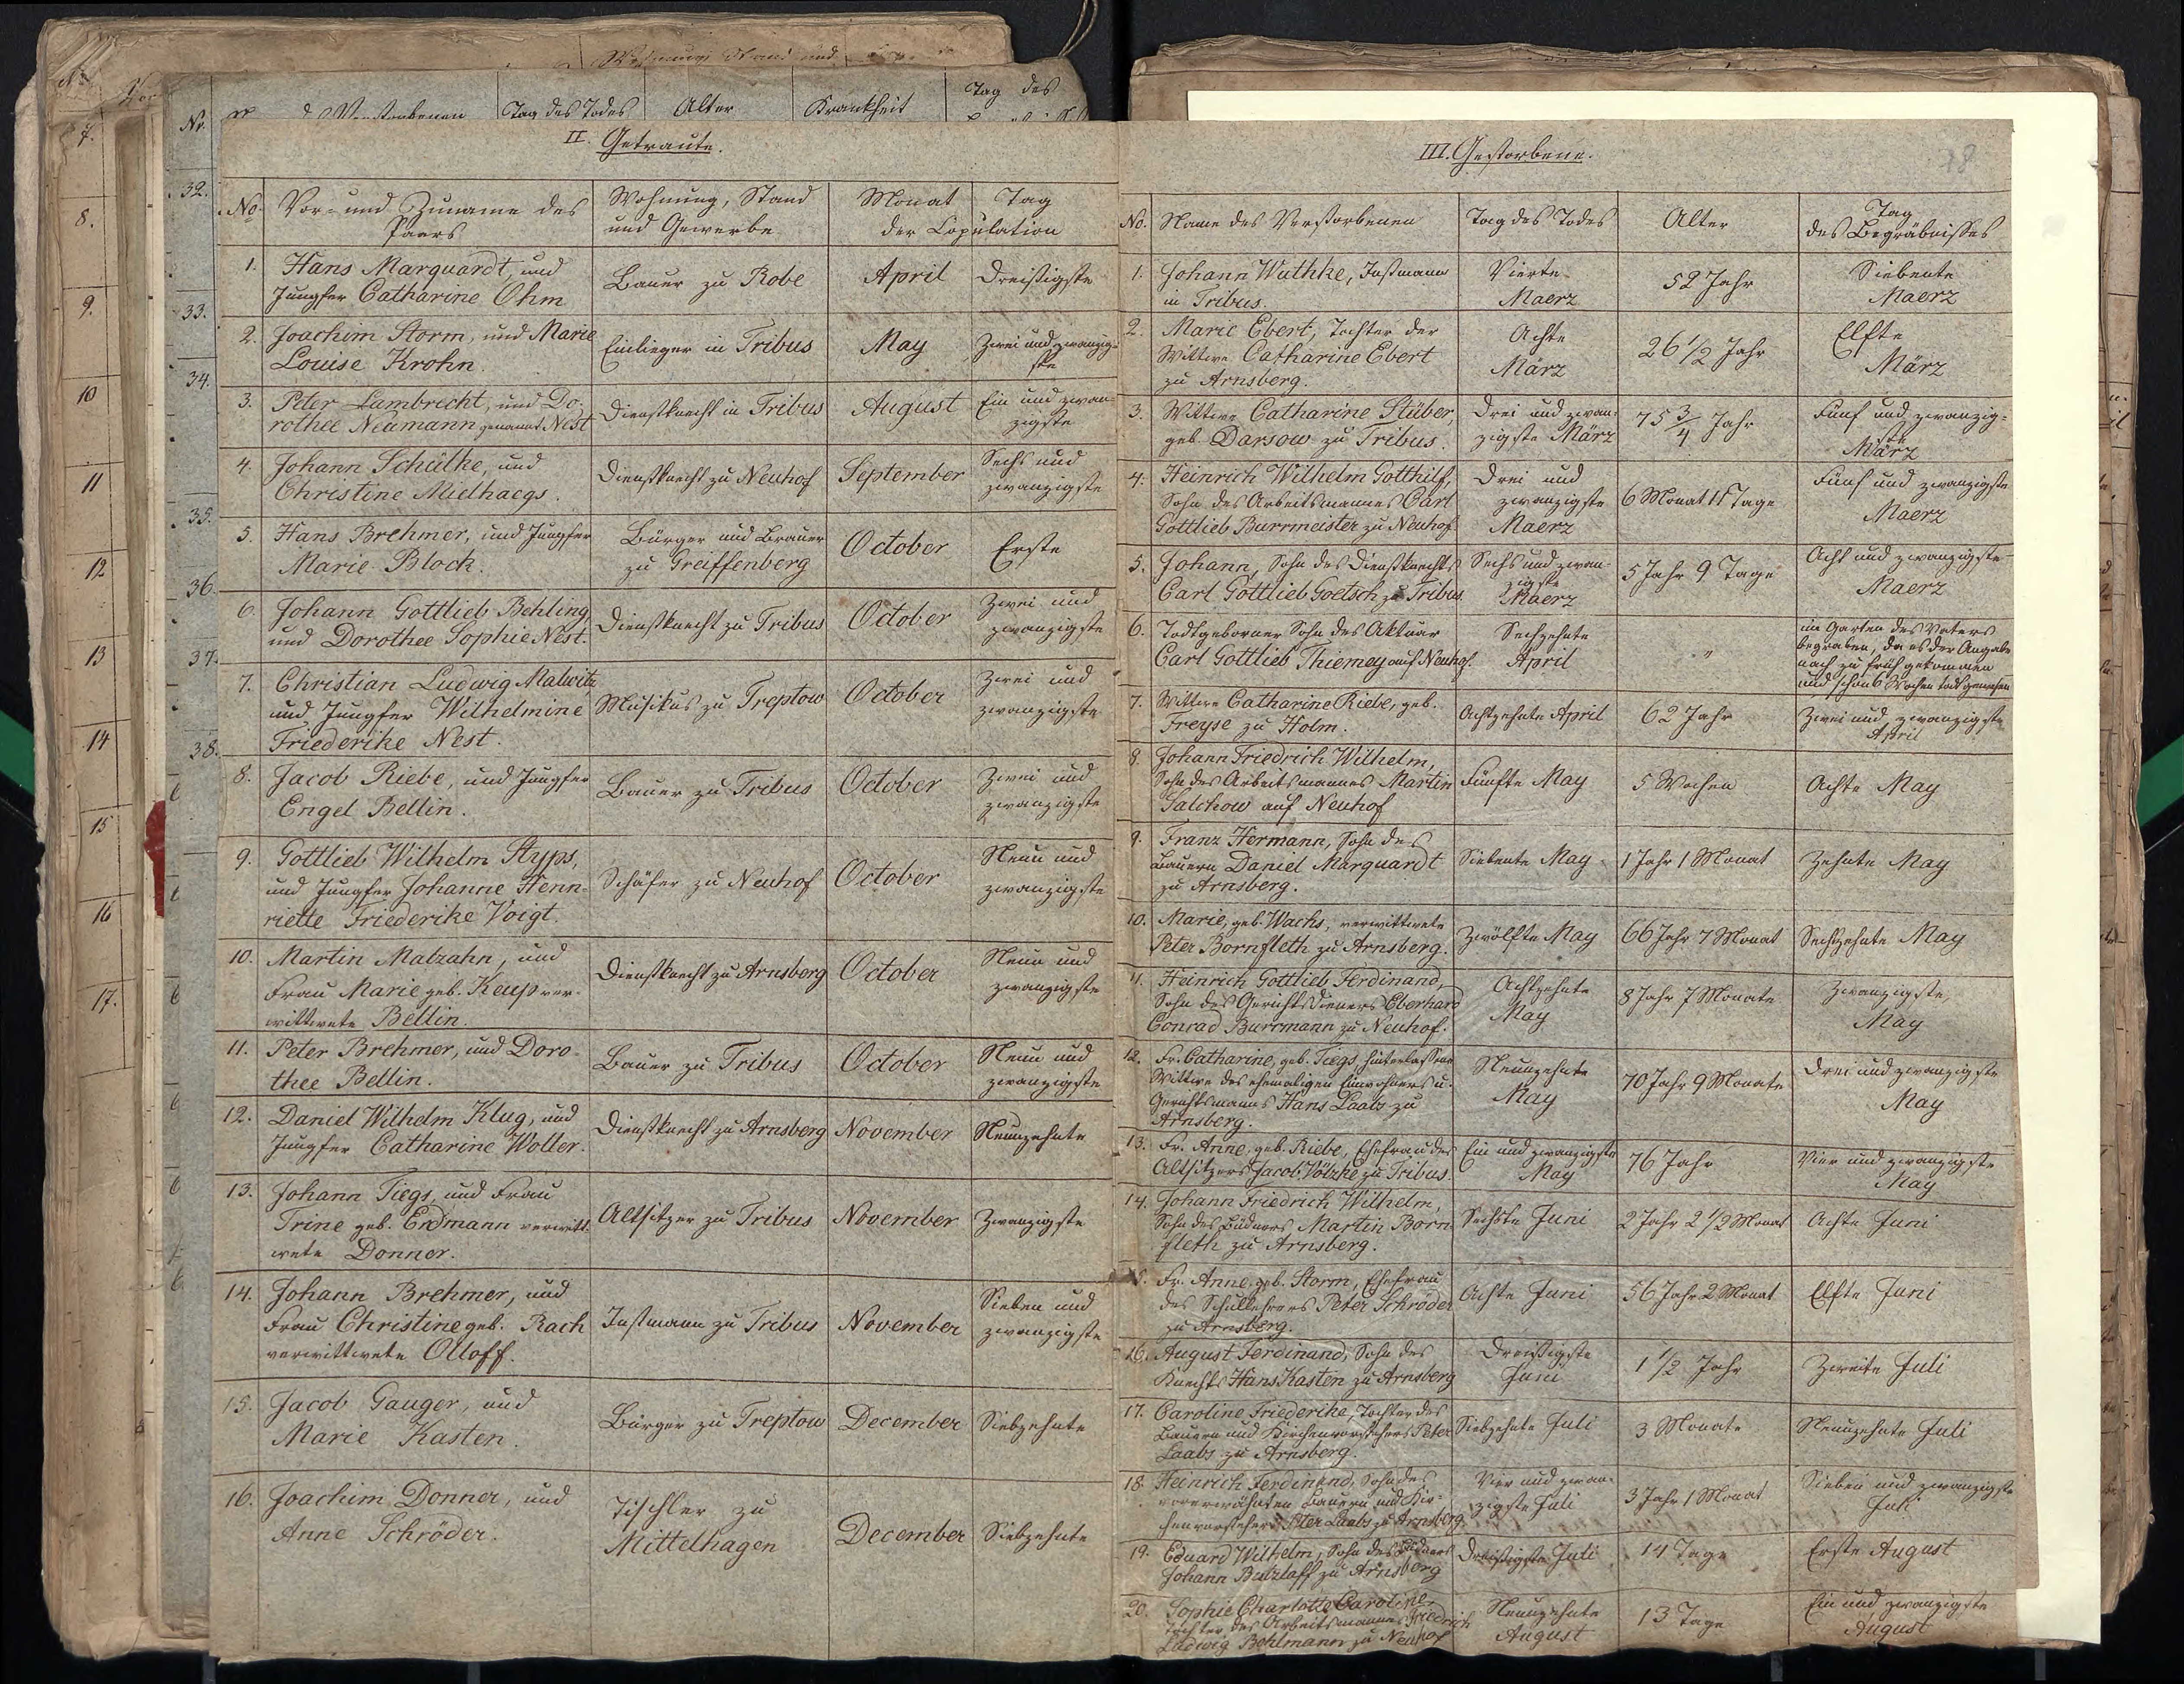 II. Getraute.
No. Vor- und Zuname des Paars
Wohnung, Stand und Gewerbe
Monat Tag
der Copulation
1. Hans Marquardt, und
Jungfer Catharine Ohm
Bauer zu Robe
April
Dreißigste
2. Joachim Storm, und Marie
Louise Krohn.
Einlieger in Tribus
May
Zwei und zwanzig-
ste
3. Peter Lambrecht, und Do-
rothee Neumann genannt Nest
Dienstknecht in Tribus
August
Ein und zwan-
zigste
4. Johann Schülke, und
Christine Mielhaegs.
Dienstknecht zu Neuhof
September
Sechs und
zwanzigste
5. Hans Brehmer, und Jungfer
Marie Block.
Bürger und Brauer
zu Greiffenberg
October
Erste
6. Johann Gottlieb Behling,
und Dorothee Sophie Nest.
Dienstknecht zu Tribus
October
Zwei und
zwanzigste
7. Christian Ludwig Malwitz
und Jungfer Wilhelmine
Friederike Nest.
Musikus zu Treptow
October
Zwei und
zwanzigste
8. Jacob Riebe, und Jungfer
Engel Bellin.
Bauer zu Tribus
October
Zwei und
zwanzigste
9. Gottlieb Wilhelm Styps,
und Jungfer Johanne Henn-
riette Friederike Voigt.
Schäfer zu Neuhof
October
Neun und
zwanzigste
10. Martin Malzahn, und
Frau Marie geb. Keup ver-
wittwete Bellin.
Dienstknecht zu Arnsberg
October
Neun und
zwanzigste
11. Peter Brehmer, und Doro-
thee Bellin.
Bauer zu Tribus
October
Neun und
zwanzigste
12. Daniel Wilhelm Klug, und
Jungfer Catharine Woller.
Dienstknecht zu Arnsberg
November
Neunzehnte
13. Johann Tiegs, und Frau
Trine geb. Erdmann verwitt-
wete Donner.
Altsitzer zu Tribus
November
Zwanzigste
14. Johann Brehmer, und
Frau Christine geb. Rach
verwittwete Olloff.
Instmann zu Tribus
November
Sieben und
zwanzigste
15. Jacob Gauger, und
Marie Kasten.
Bürger zu Treptow
December
Siebzehnte
16. Joachim Donner, und
Anne Schröder.
Tischler zu
Mittelhagen
December
Siebzehnte
III. Gestorbene.
18
No. Name des Verstorbenen
Tag des Todes
Alter
Tag
des Begräbnisses
1. Johann Wuthke, Instmann
in Tribus.
Vierte
Maerz
52 Jahr
Siebente
Maerz
2. Marie Ebert, Tochter der
Wittwe Catharine Ebert
zu Arnsberg.
Achte
März
26 1/2 Jahr
Elfte
März
3. Wittwe Catharine Stüber,
geb. Darsow zu Tribus.
Drei und zwan-
zigste März
75 3/4 Jahr
Fünf und zwanzig-
ste
März
4. Heinrich Wilhelm Gotthilf,
Sohn des Arbeitsmannes Carl
Gottlieb Burrmeister zu Neuhof
Drei und
zwanzigste
Maerz
6 Monat 11 Tage
Fünf und zwanzigste
Maerz
5. Johann, Sohn des Dienstknechts
Carl Gottlieb Goetsch zu Tribus.
Sechs und zwan-
zigste
Maerz
5 Jahr 9 Tage
Acht und zwanzigste
Maerz
6. Todtgeborner Sohn des Aktuar
Carl Gottlieb Thiemey auf Neuhof.
Sechzehnte
April
"
im Garten des Vaters
begraben, da es der Angabe
nach zu früh gekommen
und schon 6 Wochen todt gewesen
7. Wittwe Catharine Riebe, geb.
Freyse zu Holm.
Achtzehnte April
62 Jahr
Zwei und zwanzigste
April
8. Johann Friedrich Wilhelm,
Sohn des Arbeitsmannes Martin
Salchow auf Neuhof
Fünfte May
5 Wochen
Achte May
9. Franz Hermann, Sohn des
Bauern Daniel Marquardt
zu Arnsberg.
Siebente May
1 Jahr 1 Monat
Zehnte May
10. Marie, geb. Wachs, verwittwete
Peter Bornfleth zu Arnsberg.
Zwölfte May
66 Jahr 7 Monat
Sechzehnte May
11. Heinrich Gottlieb Ferdinand,
Sohn des Gerichtsdieners Eberhard
Conrad Burrmann zu Neuhof.
Achtzehnte
May
8 Jahr 7 Monate
Zwanzigste
May
12. Fr. Catharine, geb. Tiegs, hinterlassene
Wittwe des ehemaligen Einwohners u.
Gerichtsmanns Hans Laabs zu
Arnsberg.
Neunzehnte
May
70 Jahr 9 Monate
Drei und zwanzigste
May
13. Fr. Anne, geb. Riebe, Ehefrau des
Altsitzers Jacob Völzke zu Tribus.
Ein und zwanzigste
May
76 Jahr
Vier und zwanzigste
May
14. Johann Friedrich Wilhelm,
Sohn des Büdners Martin Born-
fleth zu Arnsberg.
Sechste Juni
2 Jahr 2 1/2 Monat
Achte Juni
15. Fr. Anne, geb. Storm, Ehefrau
des Schullehrers Peter Schröder
zu Arnsberg.
Achte Juni
56 Jahr 2 Monat
Elfte Juni
16. August Ferdinand, Sohn des
Knechts Hans Kasten zu Arnsberg
Dreißigste
Juni
1 1/2 Jahr
Zweite Juli
17. Caroline Friederike, Tochter des
Bauern und Kirchenvorstehers Peter
Laabs zu Arnsberg.
Siebzehnte Juli
3 Monate
Neunzehnte Juli
18. Heinrich Ferdinand, Sohn des
vorerwähnten Bauern und Kir-
chenvorstehers Peter Laabs zu Arnsberg.
Vier und zwan-
zigste Juli
3 Jahr 1 Monat
Sieben und zwanzigste
Juli
19. Eduard Wilhelm, Sohn des Büdners
Johann Butzlaff zu Arnsberg
Dreißigste Juli
14 Tage
Erste August
20. Sophie Charlotte Caroline,
Tochter des Arbeitsmannes Friedrich
Ludwig Bohlmann zu Neuhof
Neunzehnte
August
13 Tage
Ein und zwanzigste
August
Nr.
des Verstorbenen
Tag des Todes
Alter
Krankheit
Tag des
32.
33.
34.
35.
36.
37.
38.
7.
8.
9.
10
11
12
13
14
15
16
17.